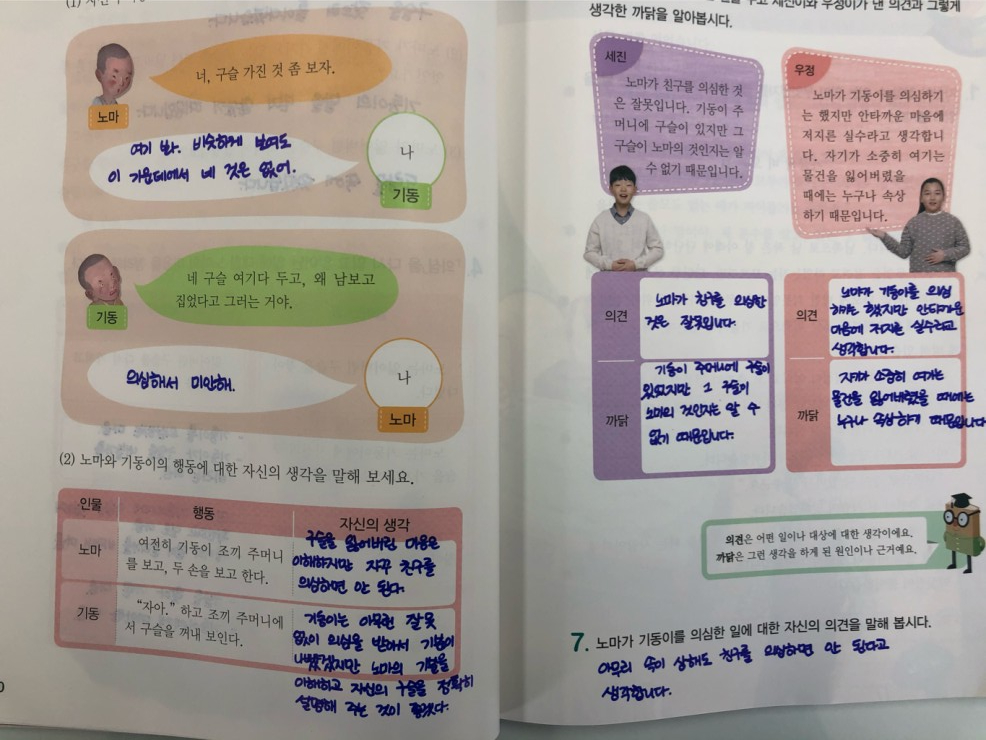 (1)
너, 구슬 가진 것 좀 보자.
노마
여기 봐. 비슷하게 보여도
이 가운데에서 네 것은 없어.
나
기동
네 구슬 여기다 두고, 왜 남보고
집었다고 그러는 거야.
기동
의심해서 미안해.
나
노마
(2) 노마와 기동이의 행동에 대한 자신의 생각을 말해 보세요.
인물 행동 자신의 생각
노마
여전히 기동이 조끼 주머니
를 보고, 두 손을 보고 한다.
구슬을 잃어버린 마음은
이해하지만 자꾸 친구를
의심하면 안 된다.
기동
“자아.” 하고 조끼 주머니에
서 구슬을 꺼내 보인다.
기동이는 아무런 잘못
없이 의심을 받아서 기분이
나빴겠지만 노마의 기분을
이해하고 자신의 구슬을 정확히
설명해 주는 것이 좋겠다.
0
주고 세진이와 우정이가 낸 의견과 그렇게
생각한 까닭을 알아봅시다.
세진
노마가 친구를 의심한 것
은 잘못입니다. 기동이 주
머니에 구슬이 있지만 그
구슬이 노마의 것인지는 알
수 없기 때문입니다.
우정
노마가 기동이를 의심하기
는 했지만 안타까운 마음에
저지른 실수라고 생각합니
다. 자기가 소중히 여기는
물건을 잃어버렸을
때에는 누구나 속상
하기 때문입니다.
의견
노마가 친구를 의심한
것은 잘못입니다.
까닭
기동이 주머니에 구슬이
있지만 그 구슬이
노마의 것인지는 알 수
없기 때문입니다.
의견
노마가 기동이를 의심
하기는 했지만 안타까운
마음에 저지른 실수라고
생각합니다.
까닭
자기가 소중히 여기는
물건을 잃어버렸을 때에는
누구나 속상하기 때문입니다
의견은 어떤 일이나 대상에 대한 생각이에요.
까닭은 그런 생각을 하게 된 원인이나 근거예요.
7. 노마가 기동이를 의심한 일에 대한 자신의 의견을 말해 봅시다.
아무리 속이 상해도 친구를 의심하면 안 된다고
생각합니다.